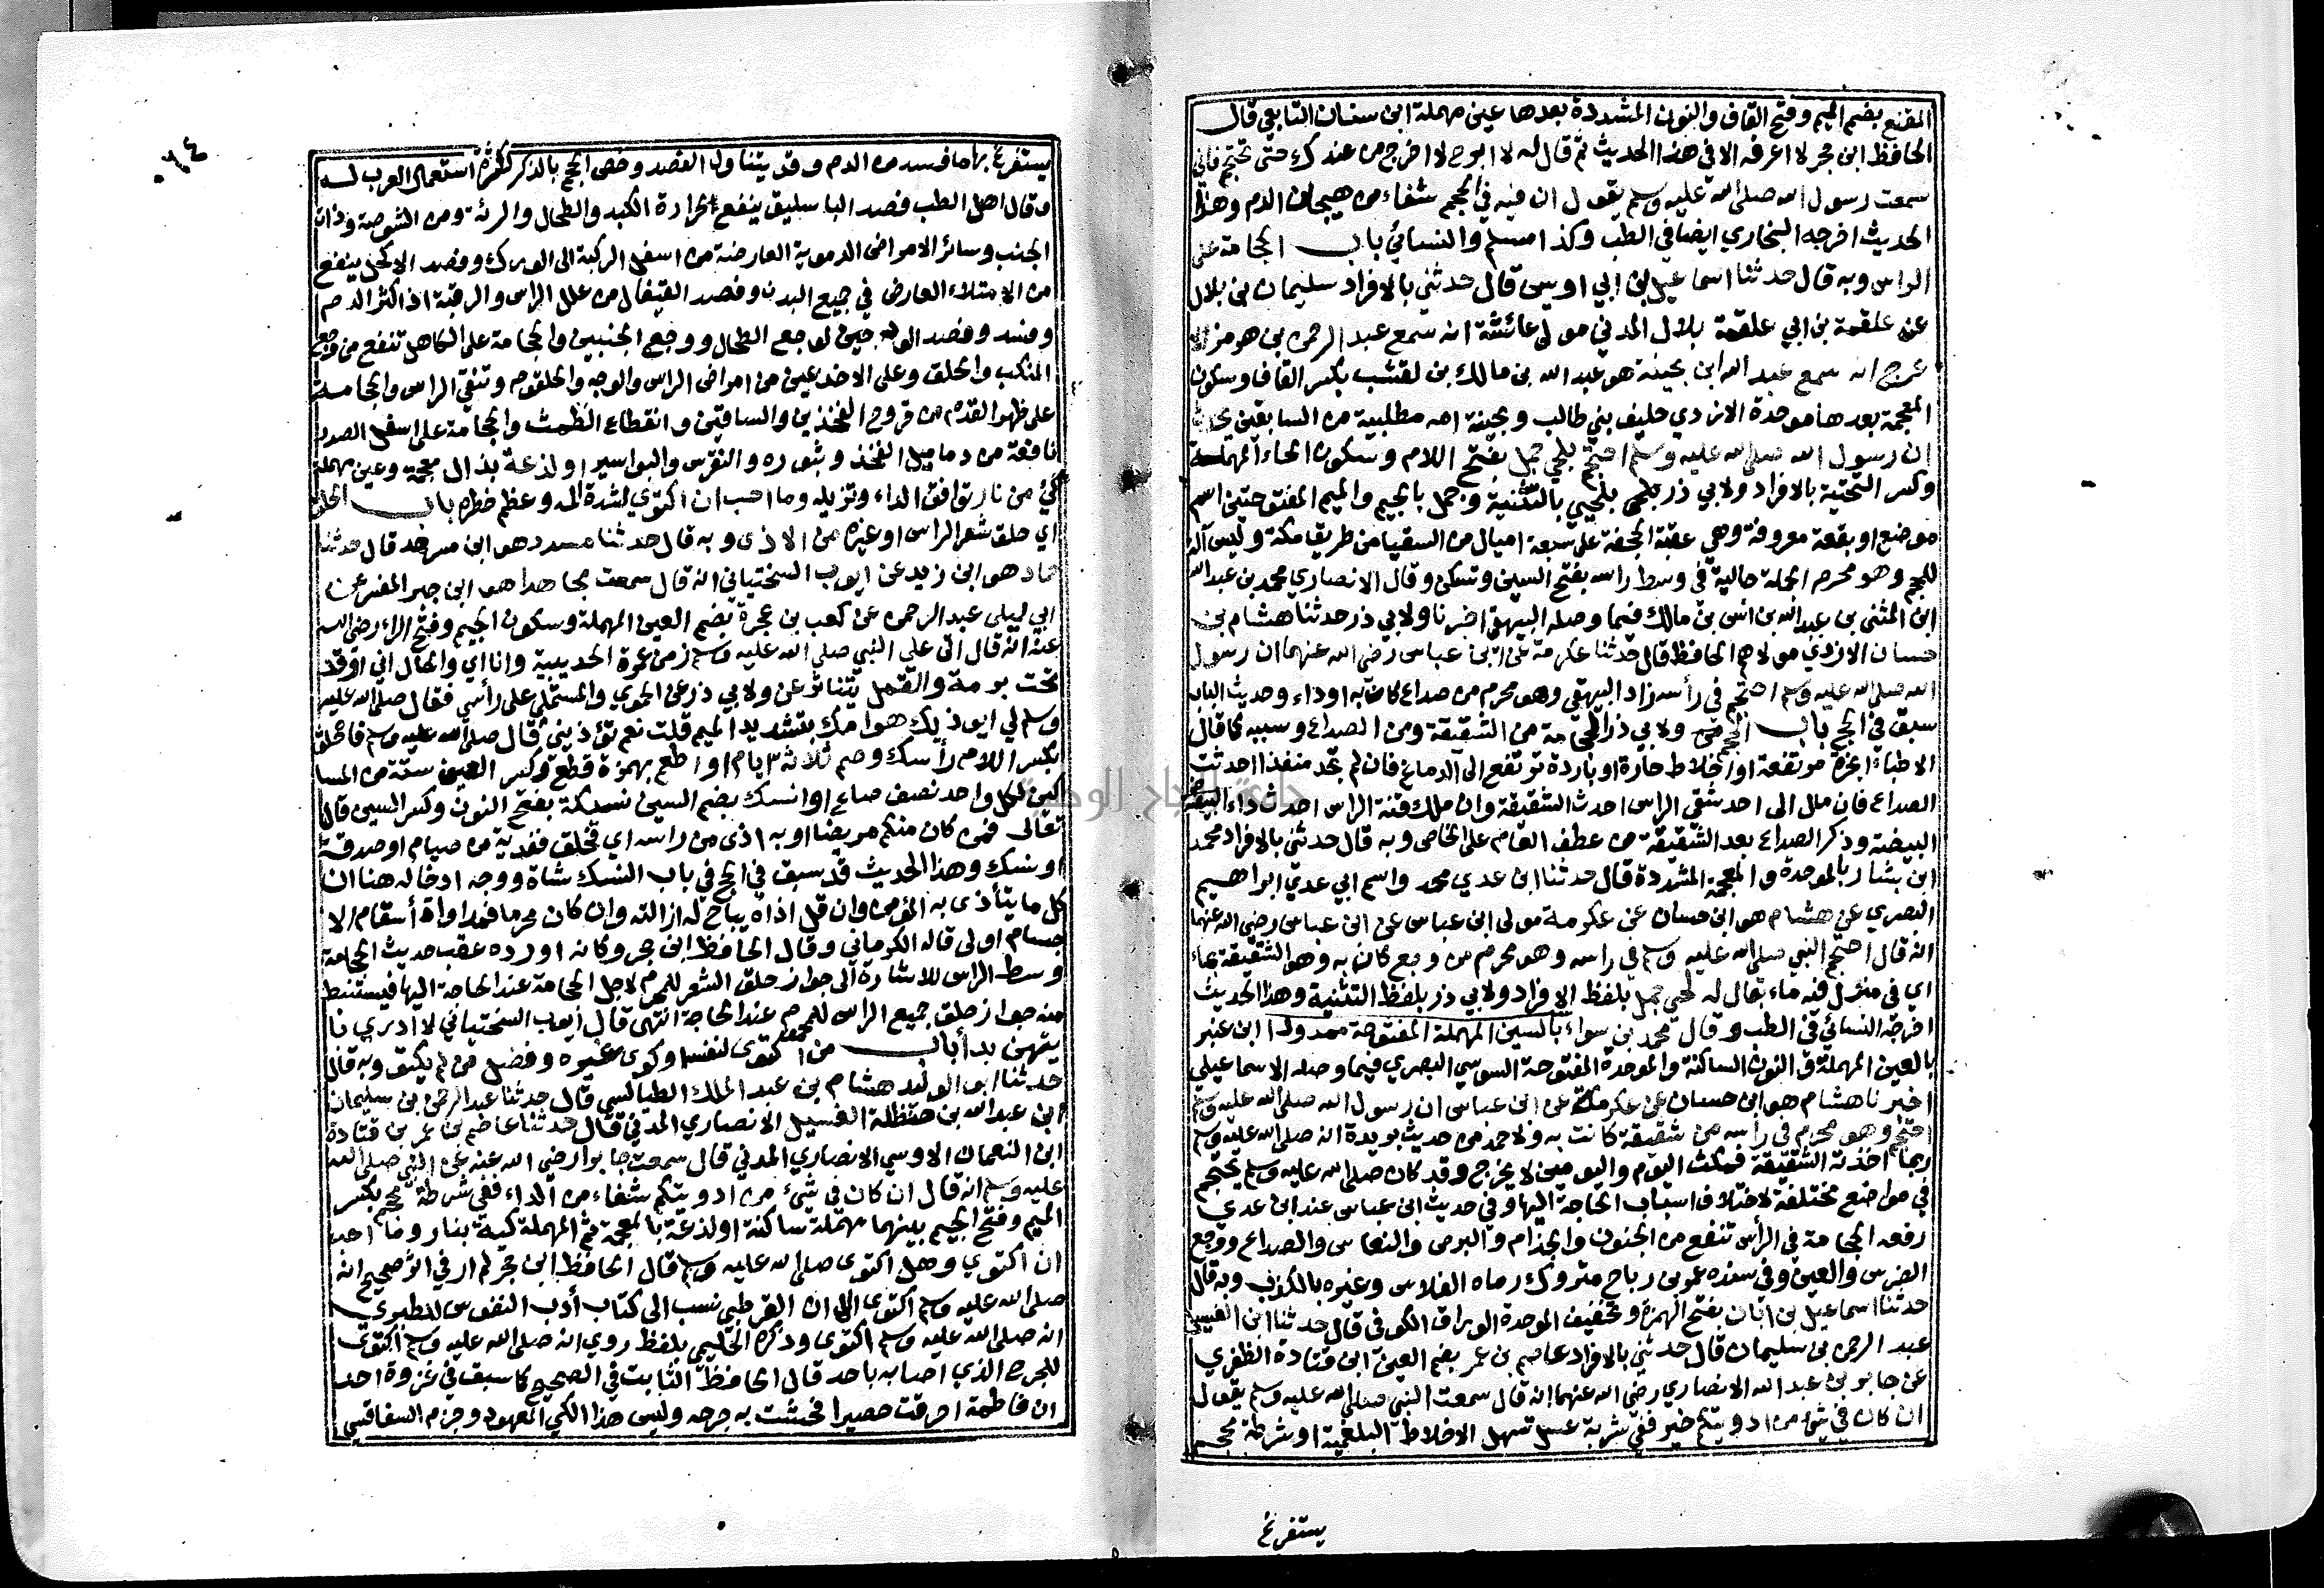 المقنع بضم الميم وفتح القاف والنون المشددة بعدها عين مهملة ابن سنان التابعي قال
الحافظ ابن حجر لا اعرفه الا في هذا الحديث ثم قال له لا ابرح لا اخرج من عندك حتى تحتجم فاني
سمعت رسول الله صلى الله عليه وسلم يقول ان فيه في الحجم شفاء من هيجان الدم وهذا
الحديث اخرجه البخاري ايضا في الطب وكذا مسلم والنسائي باب الحجامة على
الراس وبه قال حدثنا اسماعيل بن ابي اويس قال حدثني بالافراد سليمان بن بلال
عن علقمة بن ابي علقمة بلال المدني مولى عائشة انه سمع عبد الرحمن بن هرمز الا
عرج انه سمع عبد الله ابن بحينة هو عبد الله بن مالك بن لقشب بكسر القاف وسكون
المعجمة بعدها موحدة الازدي حليف بني طالب وبحينة امه مطلبية من السابقين يحدث
ان رسول الله صلى الله عليه وسلم احتجم بلحي جمل بفتح اللام وسكون الحاء المهملة
وكسر التحتية بالافراد ولابي ذر بلحيي بالتثنية وجمل بالجيم والميم المفتوحتين اسم
موضع او بقعة معروفة وهي عقبة الجحفة على سبعة اميال من السقيا من طريق مكة وليس آلة
للجم وهو محرم الجملة حالية في وسط راسه بفتح السين وتسكن وقال الانصاري محمد بن عبد الله
ابن المثنى بن عبد الله بن انس بن مالك فيما وصله البيهقي اخبرنا ولابي ذر حدثنا هشام بن
حسان الازدي مولاهم الحافظ قال حدثنا عكرمة عن ابن عباس رضي الله عنهما ان رسول
الله صلى الله عليه وسلم احتجم في رأسه زاد البيهقي وهو محرم من صداع كان به او داء وحديث الباب
سبق في الحج باب الحجم من ولابي ذر الحجامة من الشقيقة ومن الصداع وسببه كما قال
الاطباء ابخرة مرتفعة او اخلاط حارة او باردة ترتفع الى الدماغ فان لم تجد منفذا احدثت
الصداع فان ملل الى احد شقي الراس احدث الشقيقة وان ملك قنة الراس احدث داء البيضة
البيضة وذكر الصداع بعد الشقيقة من عطف العام على الخاص وبه قال حدثني بالافراد محمد
ابن بشار بالموحدة والمعجمة المشددة قال حدثنا ابن عدي محمد واسم ابي عدي ابراهيم
البصري عن هشام هو ابن حسان عن عكرمة مولى ابن عباس عن ابن عباس رضي الله عنهما
انه قال احتجم النبي صلى الله عليه وسلم في راسه وهو محرم من وجع كان به وهو الشقيقة بماء
اي في منزل فيه ماء يقال له لحي جمل بلفظ الافراد ولابي ذر بلفظ التثنية وهذا الحديث
اخرجه النسائي في الطب وقال محمد بن سواء بالسين المهملة المفتوحة ممدودا ابن عنبر
بالعين المهملة والنون الساكنة والموحدة المفتوحة السوسي البصري فيما وصله الاسماعيلي
اخبرنا هشام هو ابن حسان عن عكرمة عن ابن عباس ان رسول الله صلى الله عليه وسلم
احتجم وهو محرم في رأسه من شقيقة كانت به ولاحمد من حديث بريدة انه صلى الله عليه وسلم
ربما اخذته الشقيقة فيمكث اليوم واليومين لا يخرج وقد كان صلى الله عليه وسلم يحتجم
في مواضع مختلفة لاختلاف اسباب الحاجة اليها وفي حديث ابن عباس عند ابن عدي
رفعه الحجامة في الرأس تنفع من الجنون والجذام والبرص والنعاس والصداع ووجع
الضرس والعين وفي سنده عمر بن رباح متروك رماه الفلاس وغيره بالكذب وبه قال
حدثنا اسماعيل بن ابان بفتح الهمزة وتخفيف الموحدة الوراق الكوفي قال حدثنا ابن الغسيل
عبد الرحمن بن سليمان قال حدثني بالافراد عاصم بن عمر بضم العين ابن قتادة الظفري
عن جابر بن عبد الله الانصاري رضي الله عنهما انه قال سمعت النبي صلى الله عليه وسلم يقول
ان كان في شيء من ادويتكم خير ففي شربة عسل تسهل الاخلاط البلغمية او شرطة محجم
يستفرغ
٦٤
يستفرغ بها ما فسد من الدم وقد يتناول الفصد وخص الحجم بالذكر لكثرة استعمال العرب له
وقال اهل الطب فصد الباسليق ينفع لحرارة الكبد والطحال والرئة ومن الشوصة وذات
الجنب وسائر الامراض الدموية العارضة من اسفل الركبة الى الورك وفصد الاكحل ينفع
من الامتلاء العارض في جميع البدن وفصد القيفال من علل الراس والرقبة اذا كثر الدم
وفسد وفصد الودجين لوجع الطحال ووجع الجنبين والحجامة على الكاهل تنفع من وجع
المنكب والحلق وعلى الاخدعين من امراض الراس والوجه والحلقوم وتنقي الراس والحجامة
على ظهر القدم من قروح الفخذين والساقين وانقطاع الطمث والحجامة على اسفل الصدر
نافعة من دماميل الفخذ وبثوره والنقرس والبواسير او لذعة بذال معجمة وعين مهملة
كي من نار توافق الداء وتزيله وما احب ان اكتوي لشدة المه وعظم خطره باب الحلق
اي حلق شعر الراس او غيره من الاذى وبه قال حدثنا مسدد هو ابن مسرهد قال حدثنا
حماد هو ابن زيد عن ايوب السختياني انه قال سمعت مجاهدا هو ابن جبر المفسر عن
ابي ليلى عبد الرحمن عن كعب بن عجرة بضم العين المهملة وسكون الجيم وفتح الراء رضي الله
عنه انه قال اتى علي النبي صلى الله عليه وسلم زمن عمرة الحديبية وانا اي والحال اني اوقد
تحت برمة والقمل يتناثر عن ولابي ذر عن الحموي والمستملي على رأسي فقال صلى الله عليه
وسلم لي ايوذيك هوامك بتشديد الميم قلت نعم تؤذيني قال صلى الله عليه وسلم فاحلق
بكسر اللام رأسك وصم ثلاثة ايام او اطعم بهمزة قطع وكسر العين ستة من المسا
كين لكل واحد نصف صاع او انسك بضم السين نسيكة بفتح النون وكسر السين قال
تعالى فمن كان منكم مريضا او به اذى من راسه اي فحلق ففدية من صيام او صدقة
او نسك وهذا الحديث قد سبق في الحج في باب النسك شاة ووجه ادخاله هنا ان
كل ما يتأذى به المؤمن وان قل اذاه يباح له ازالته وان كان محرما فمداواة أسقام الا
جسام اولى قاله الكرماني وقال الحافظ ابن حجر وكانه اورده عقب حديث الحجامة
وسط الراس للاشارة الى جواز حلق الشعر للمحرم لاجل الحجامة عند الحاجة اليها فيستنبط
منه جواز حلق جميع الراس للمحرم عند الحاجة انتهى قال ايوب السختياني لا ادري با
يتهن بدأ باب من اكتوى لنفسه او كوى غيره وفضل من لم يكتو وبه قال
حدثنا ابو الوليد هشام بن عبد الملك الطيالسي قال حدثنا عبد الرحمن بن سليمان
ابن عبد الله بن حنظلة الغسيل الانصاري المدني قال حدثنا عاصم بن عمر بن قتادة
ابن النعمان الاوسي الانصاري المدني قال سمعت جابرا رضي الله عنه عن النبي صلى الله
عليه وسلم انه قال ان كان في شيء من ادويتكم شفاء من الداء ففي شرطة محجم بكسر
الميم وفتح الجيم بينهما مهملة ساكنة او لذعة بالمعجمة ثم المهملة كية بنار وما احب
ان اكتوي وهل اكتوى صلى الله عليه وسلم قال الحافظ ابن حجر لم ار في اثر صحيح انه
صلى الله عليه وسلم اكتوى الا ان القرطبي نسب الى كتاب أدب النفوس للطبري
انه صلى الله عليه وسلم اكتوى وذكره الحليمي بلفظ روي انه صلى الله عليه وسلم اكتوى
للجرح الذي اصابه باحد قال الحافظ الثابت في الصحيح كما سبق في غزوة احد
ان فاطمة احرقت حصيرا فحشت به جرحه وليس هذا الكي المعهود وجزم السفاقسي